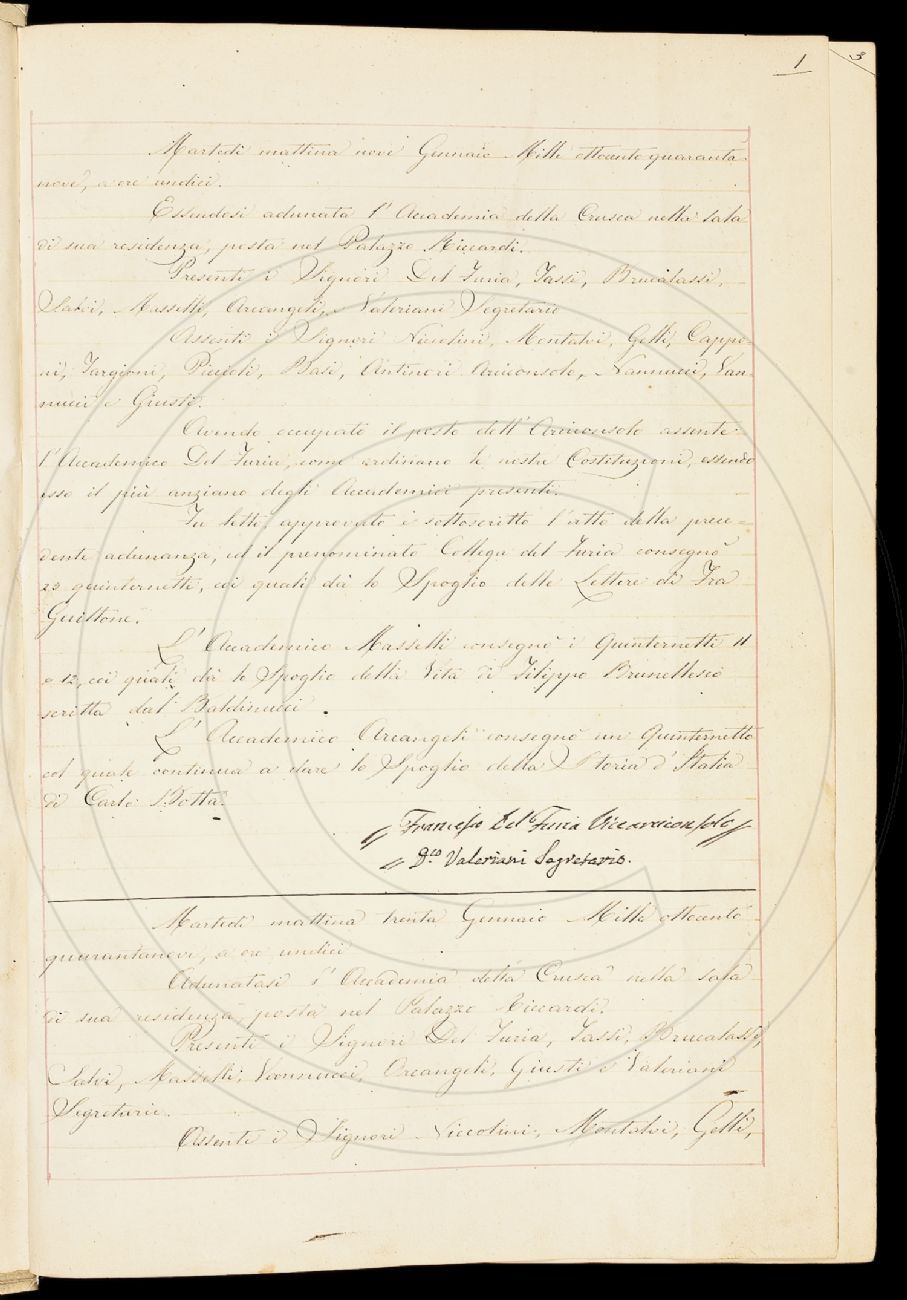 1
3
Martedì mattina nove Gennaio Mille ottocento quaranta-
nove, a ore undici.
Essendosi adunata l'Accademia della Crusca nella sala
di sua residenza, posta nel Palazzo Riccardi.
Presenti i Signori Del Furia, Tassi, Brucalassi,
Salvi, Masselli, Arcangeli, Valeriani Segretario
Assenti i Signori Niccolini, Montalvi, Gelli, Cappo-
ni, Targioni, Piccioli, Basi, Antinori Arciconsolo, Nannucci, Van-
nucci e Giusti.
Avendo occupato il posto dell'Arciconsolo assente
l'Accademico Del Furia, come ordinano le nostre Costituzioni, essendo
esso il più anziano degli Accademici presenti.
Fu letto, approvato e sottoscritto l'atto della prece-
dente adunanza, ed il prenominato Collega del Furia consegnò
23 quinternetti, coi quali dà lo Spoglio delle Lettere di Fra
Guittone.
L'Accademico Masselli consegnò i Quinternetti 11
e 12, coi quali dà lo Spoglio della Vita di Filippo Brunellesco
scritta dal Baldinucci.
L'Accademico Arcangeli consegnò un Quinternetto
col quale continua a dare lo Spoglio della Storia d'Italia
di Carlo Botta.
Francesco Del Furia Vicearciconsolo
D.co Valeriani Segretario.
Martedì mattina trenta Gennaio Mille ottocento
quarantanove, a ore undici
Adunatasi l'Accademia della Crusca nella sala
di sua residenza, posta nel Palazzo Riccardi.
Presenti i Signori Del Furia, Tassi, Brucalassi,
Salvi, Masselli, Vannucci, Arcangeli, Giusti e Valeriani
Segretario.
Assenti i Signori Niccolini, Montalvi, Gelli,